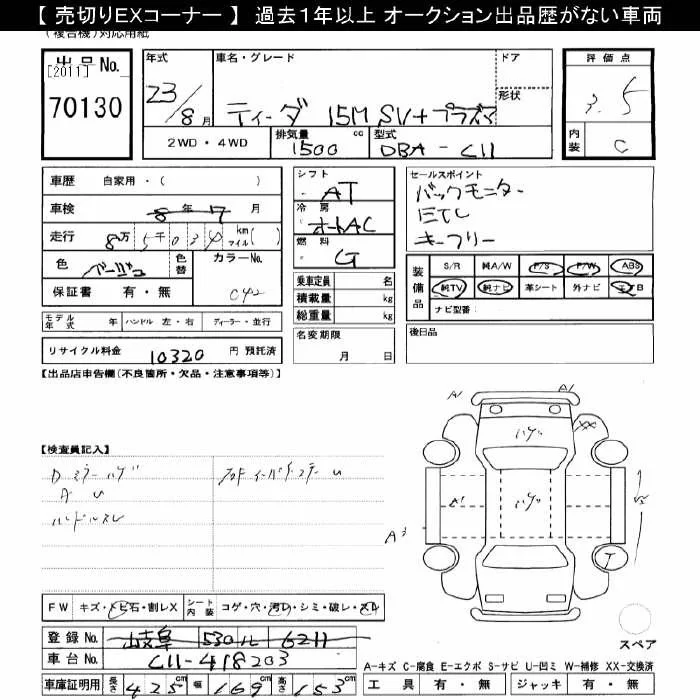 【 売切りEXコーナー 】 過去1年以上 オークション出品歴がない車両
(複合機)対応用紙
出品 No.
[2011]
70130
年式
23/8月
車名・グレード
ティーダ 15M SV+プラズマ
ドア
形状
評価点
3.5
内装
C
2WD・4WD
排気量
1500 cc
型式
DBA-C11
車歴 自家用・( )
車検 8年7月
走行 8万5千030 km マイル( )
色 ベージュ
色替
カラーNo.
042
保証書 有・無
シフト
AT
冷房
オートAC
燃料
G
乗車定員 名
積載量 kg
総重量 kg
セールスポイント
バックモニター
ETC
キーフリー
装備品
S/R 純A/W P/S P/W ABS
純TV 純ナビ 革シート 外ナビ エアB
ナビ型番
モデル年式 年 ハンドル 左・右 ディーラー・並行
名変期限
月 日
後日品
リサイクル料金 10320 円 預託済
【出品店申告欄(不良箇所・欠品・注意事項等)】
A1 A1
XX
ハゲ
【検査員記入】
Dミラーハゲ
A U
ハンドルスレ
A1
ハゲ
A3
T
FW キズ・トビ石・割レX シート内装 コゲ・穴・汚レ・シミ・破レ・スレ
登録No. 岐阜 530 ル 6211
車台No. C11-418203
スペア
A-キズ C-腐食 E-エクボ S-サビ U-凹ミ W-補修 XX-交換済
車庫証明用 長さ 425cm 幅 169cm 高さ 153cm
工具 有・無 ジャッキ 有・無